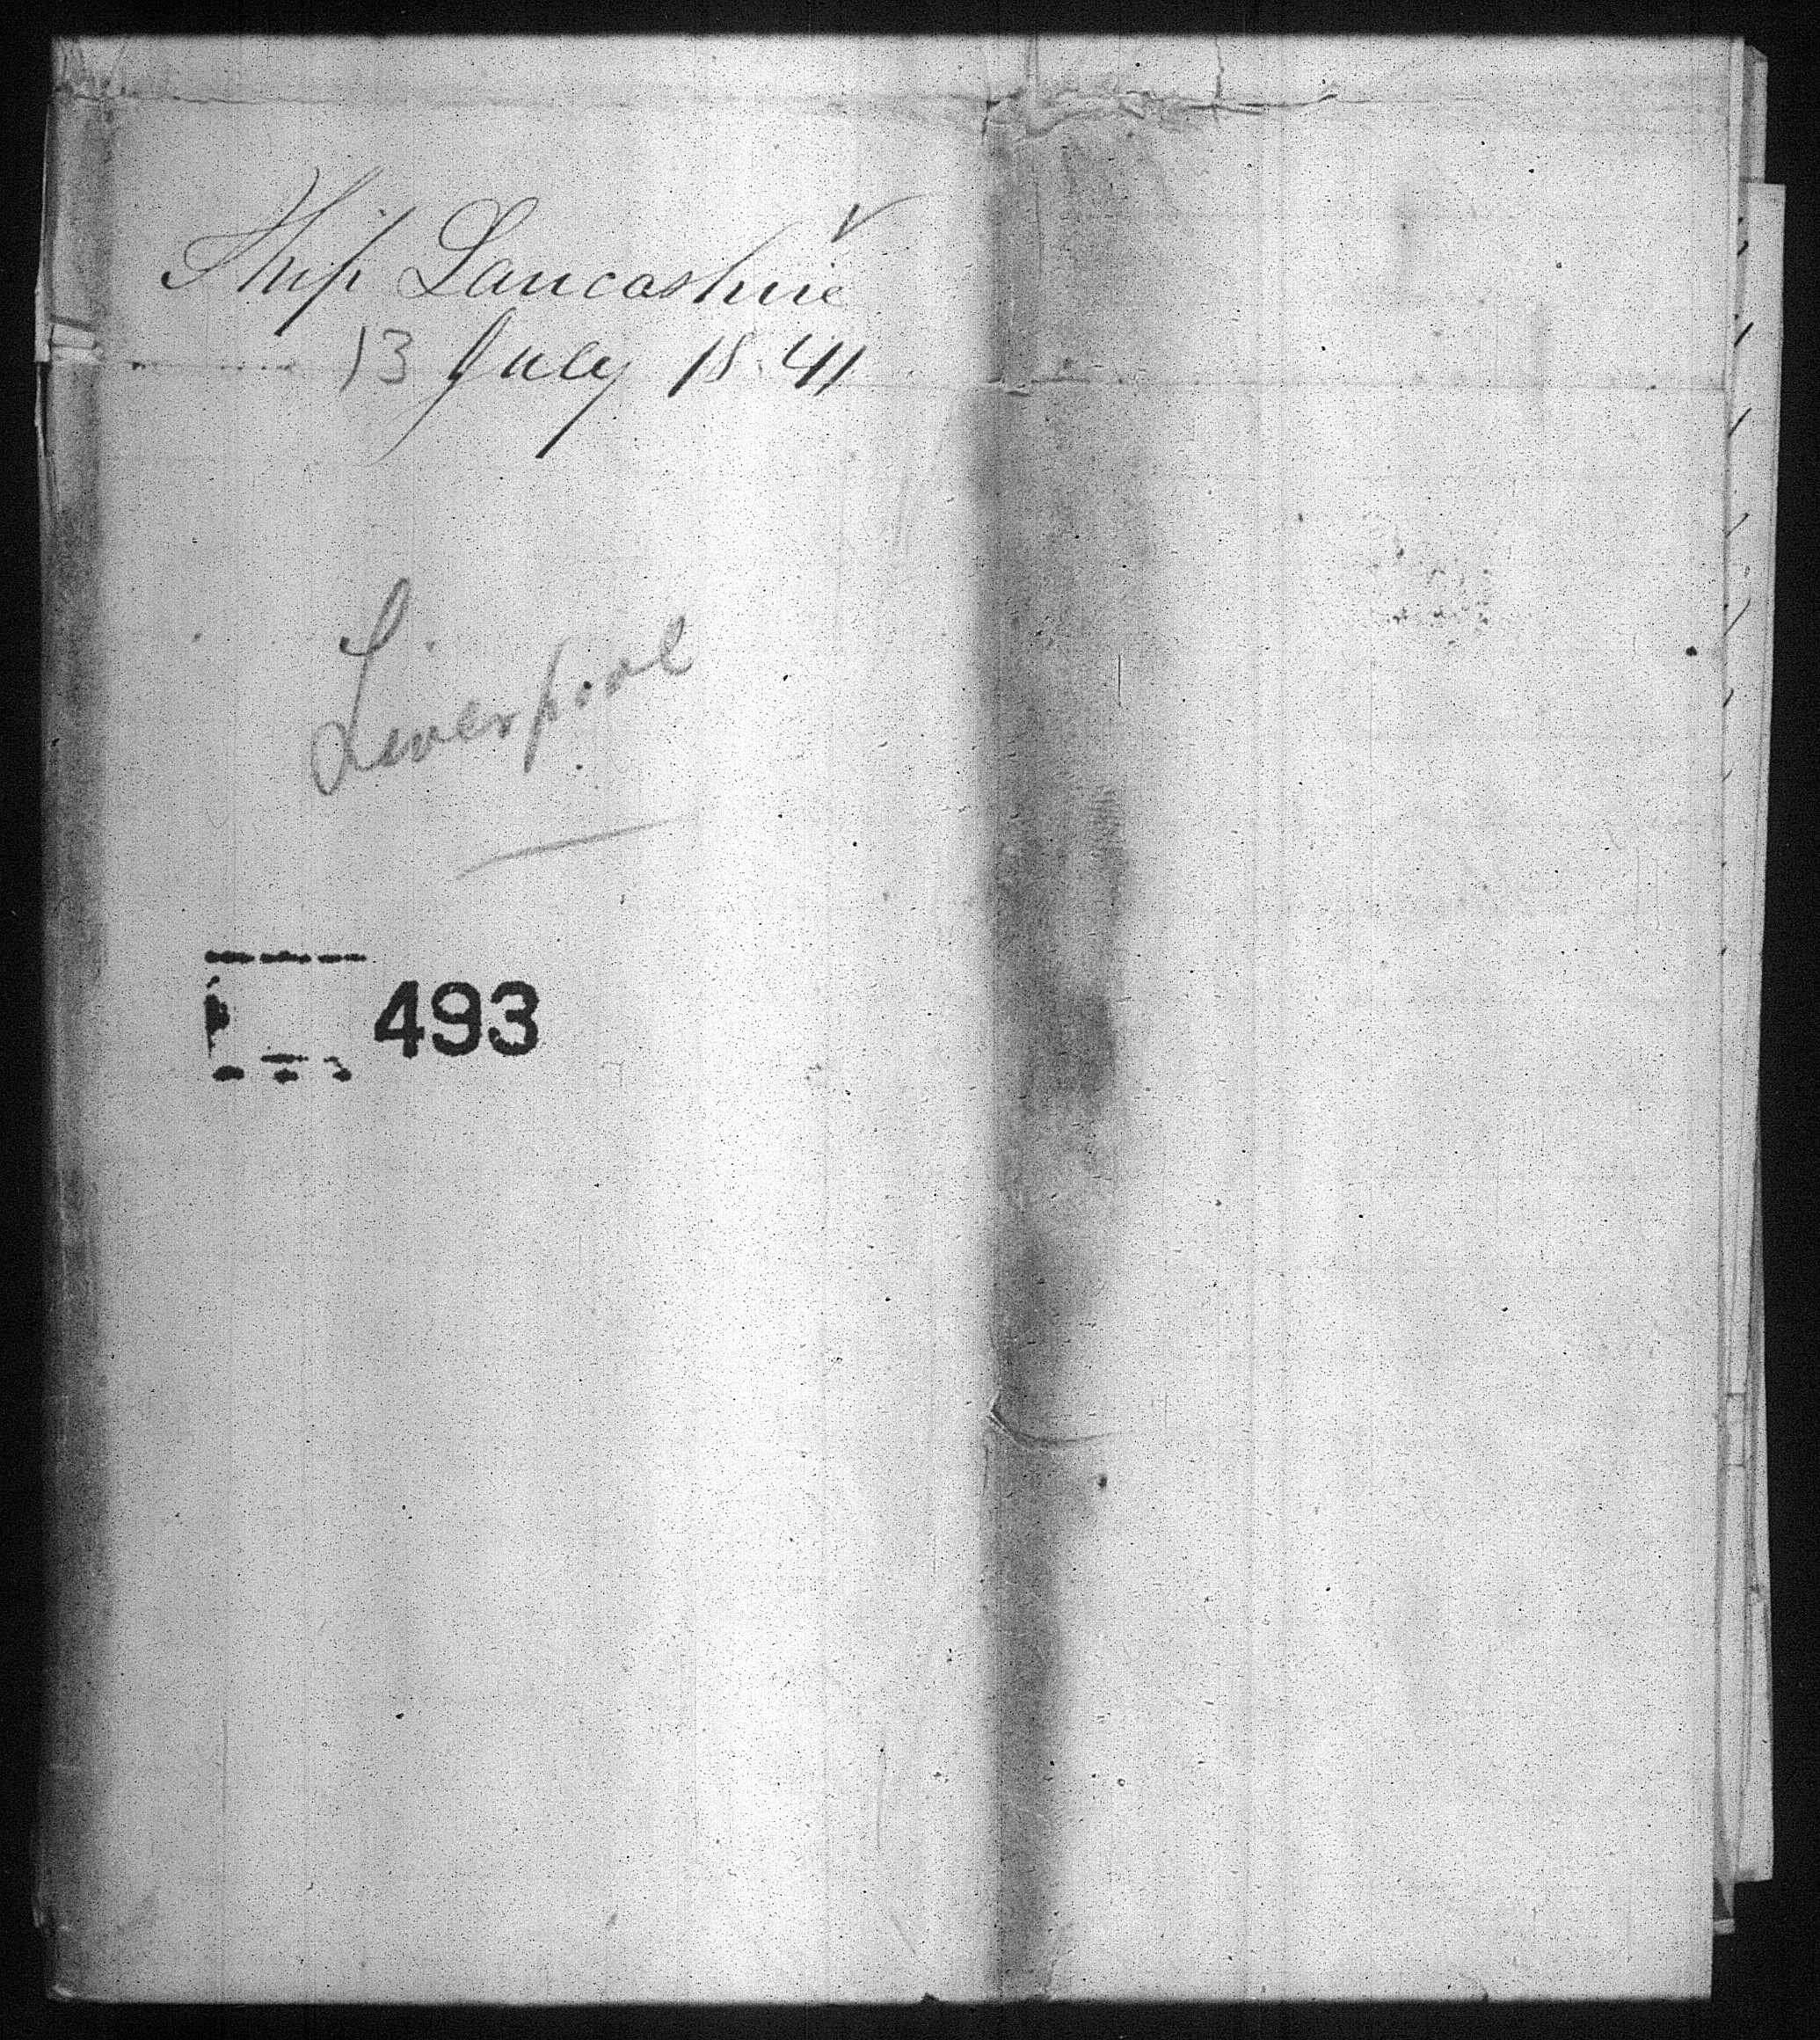 Ship Lancashire
13 July 1841
Liverpool
493